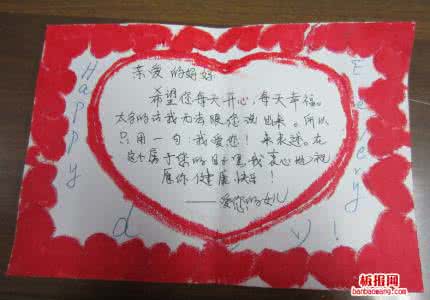 亲爱的妈妈
希望您每天开心，每天幸福。
太多的话我无法跟您说出来。所以
只用一句"我爱您！"来表达。在
这个属于您的日子里我真心地祝
愿你健康快乐！
——爱您的女儿
Happy
Every
d
y!
板报网
banbaowang.com